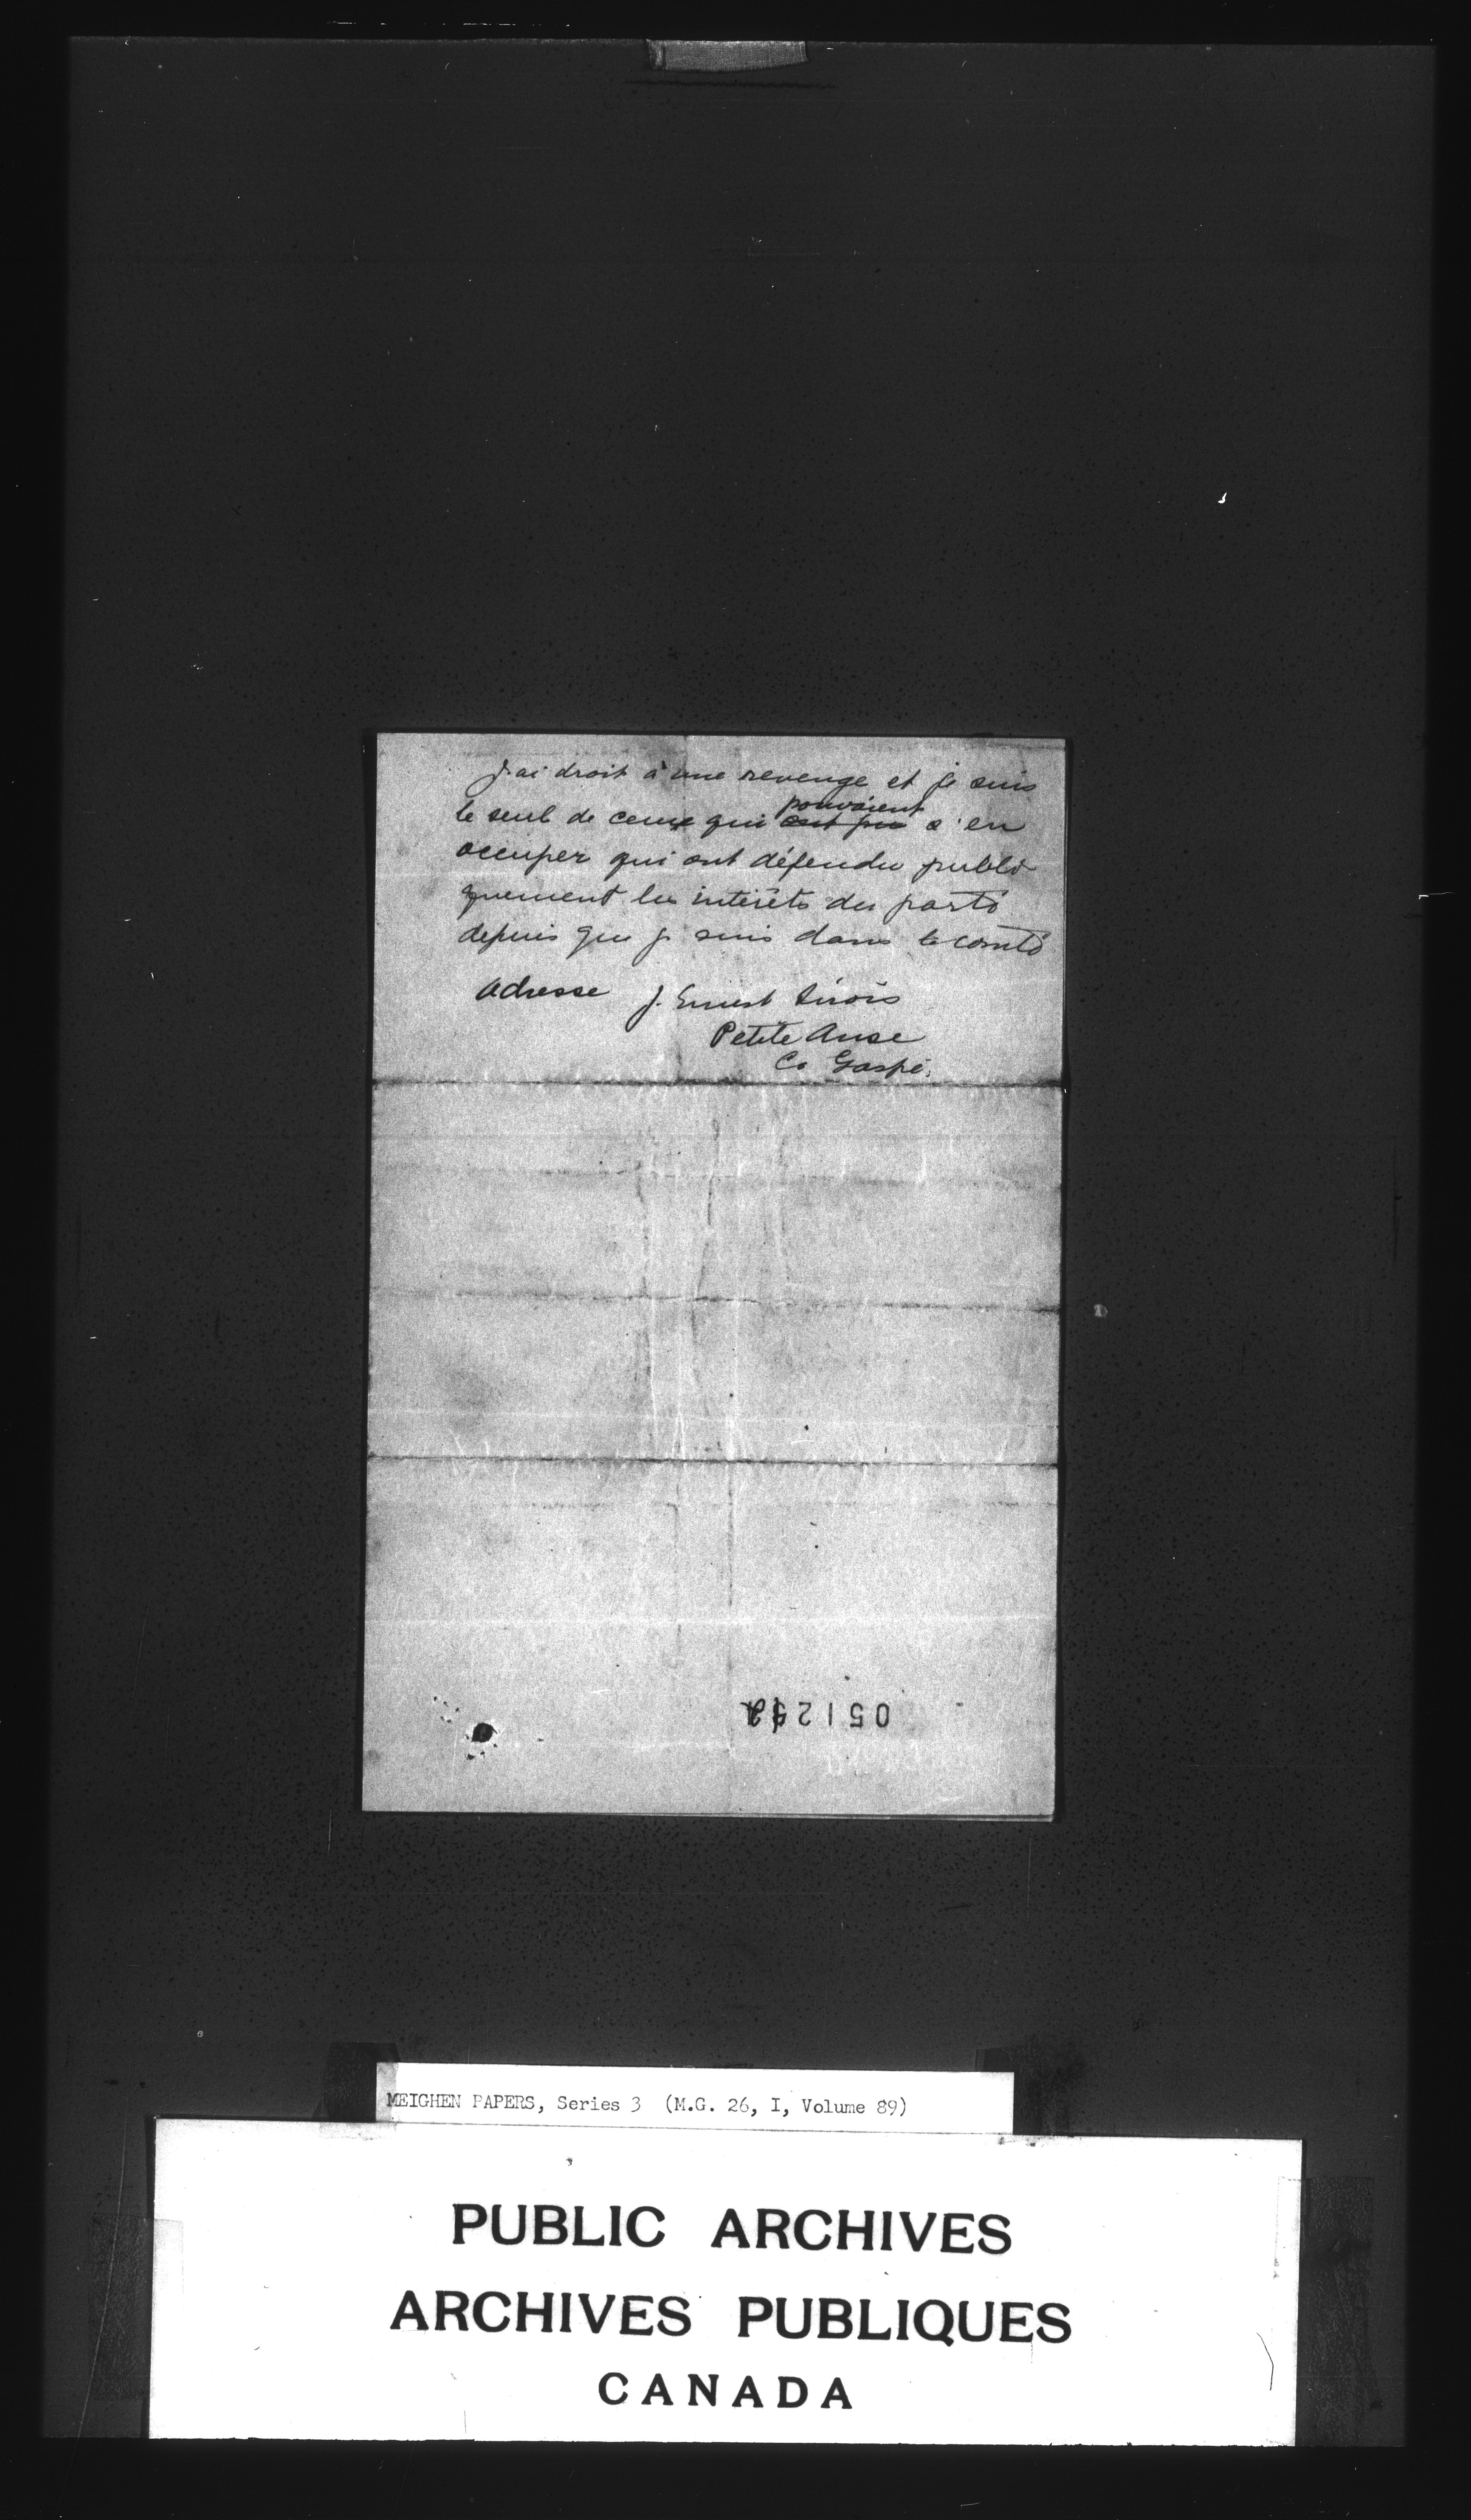 J'ai droit à une revenge et je suis
le seul de ceux qui pouvaient s'en
occuper qui ont défendu publi
quement les intérêts du parti
depuis que je suis dans le comté
Adresse J. Ernest Sirois
Petite Anse
Co Gaspé.
MEIGHEN PAPERS, Series 3 (M.G. 26, I, Volume 89)
PUBLIC ARCHIVES
ARCHIVES PUBLIQUES
CANADA